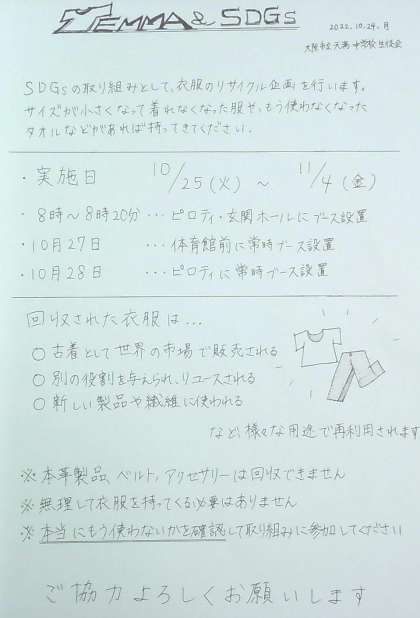 TEMMA & SDGs
2022.10.24.月
大阪市立天満中学校生徒会
SDGsの取り組みとして、衣服のリサイクル企画を行います。
サイズが小さくなって着れなくなった服や、もう使わなくなった
タオルなどがあれば持ってきてください。
・実施日 10/25(火) ～ 11/4(金)
・8時～8時20分 … ピロティ・玄関ホールにブース設置
・10月27日 … 体育館前に常時ブース設置
・10月28日 … ピロティに常時ブース設置
回収された衣服は…
○ 古着として世界の市場で販売される
○ 別の役割を与えられ、リユースされる
○ 新しい製品や繊維に使われる
など、様々な用途で再利用されます
※本革製品、ベルト、アクセサリーは回収できません
※無理して衣服を持ってくる必要はありません
※本当にもう使わないかを確認して取り組みに参加してください
ご協力よろしくお願いします